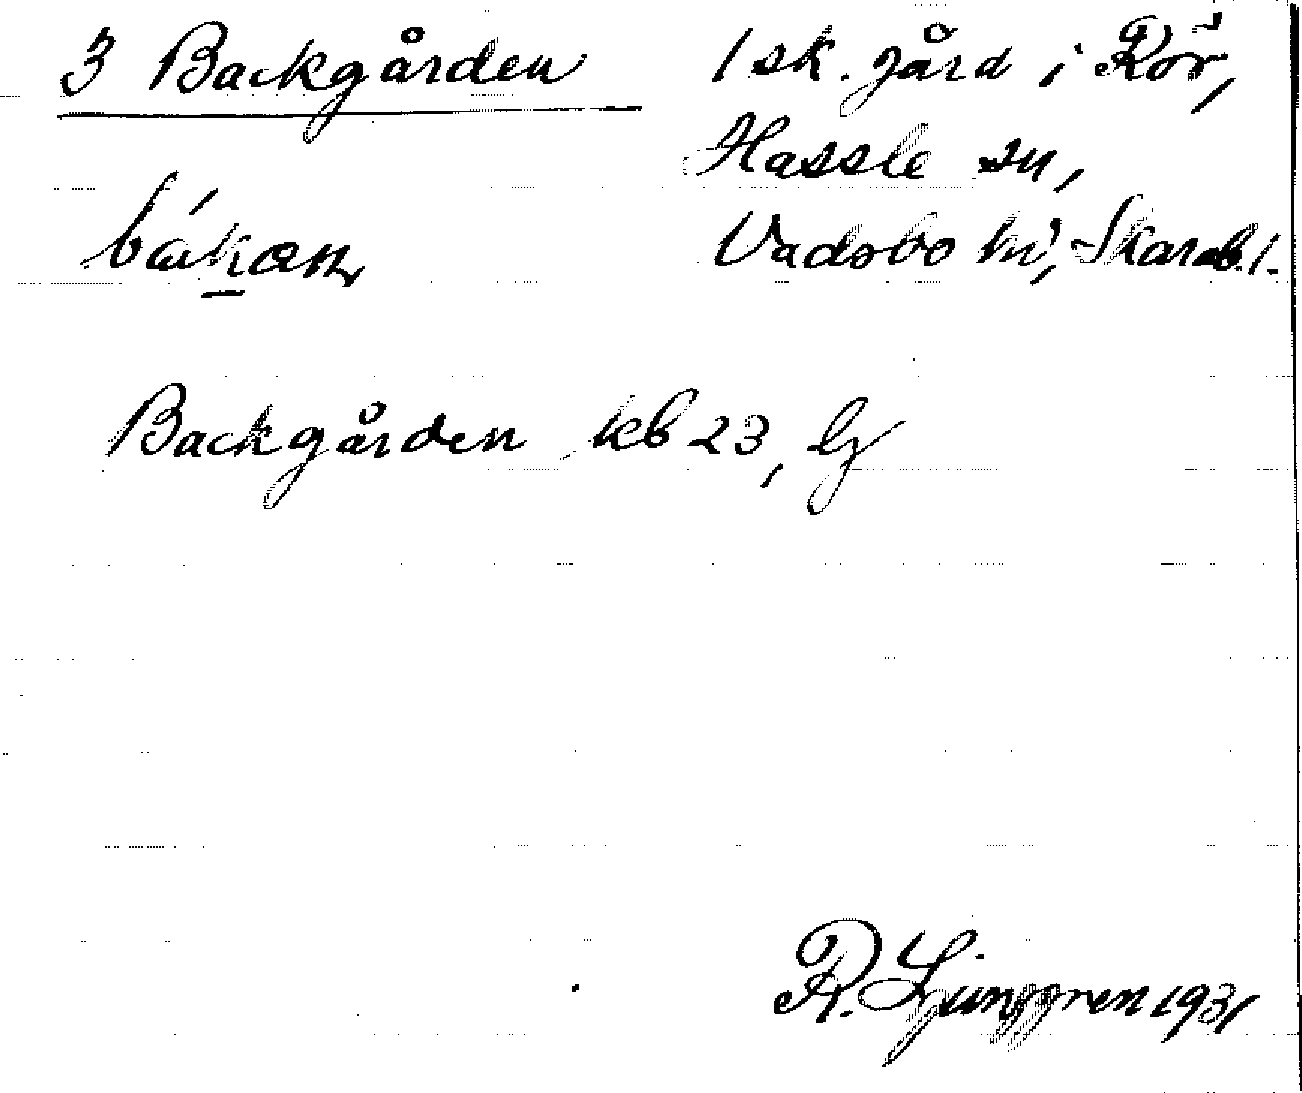 3 Backgården 1 sk. gård i Rör,
Hassle sn,
Vadsbo hd, Skarab. l.
Backgården kb 23, lj
R. Ljunggren 1931